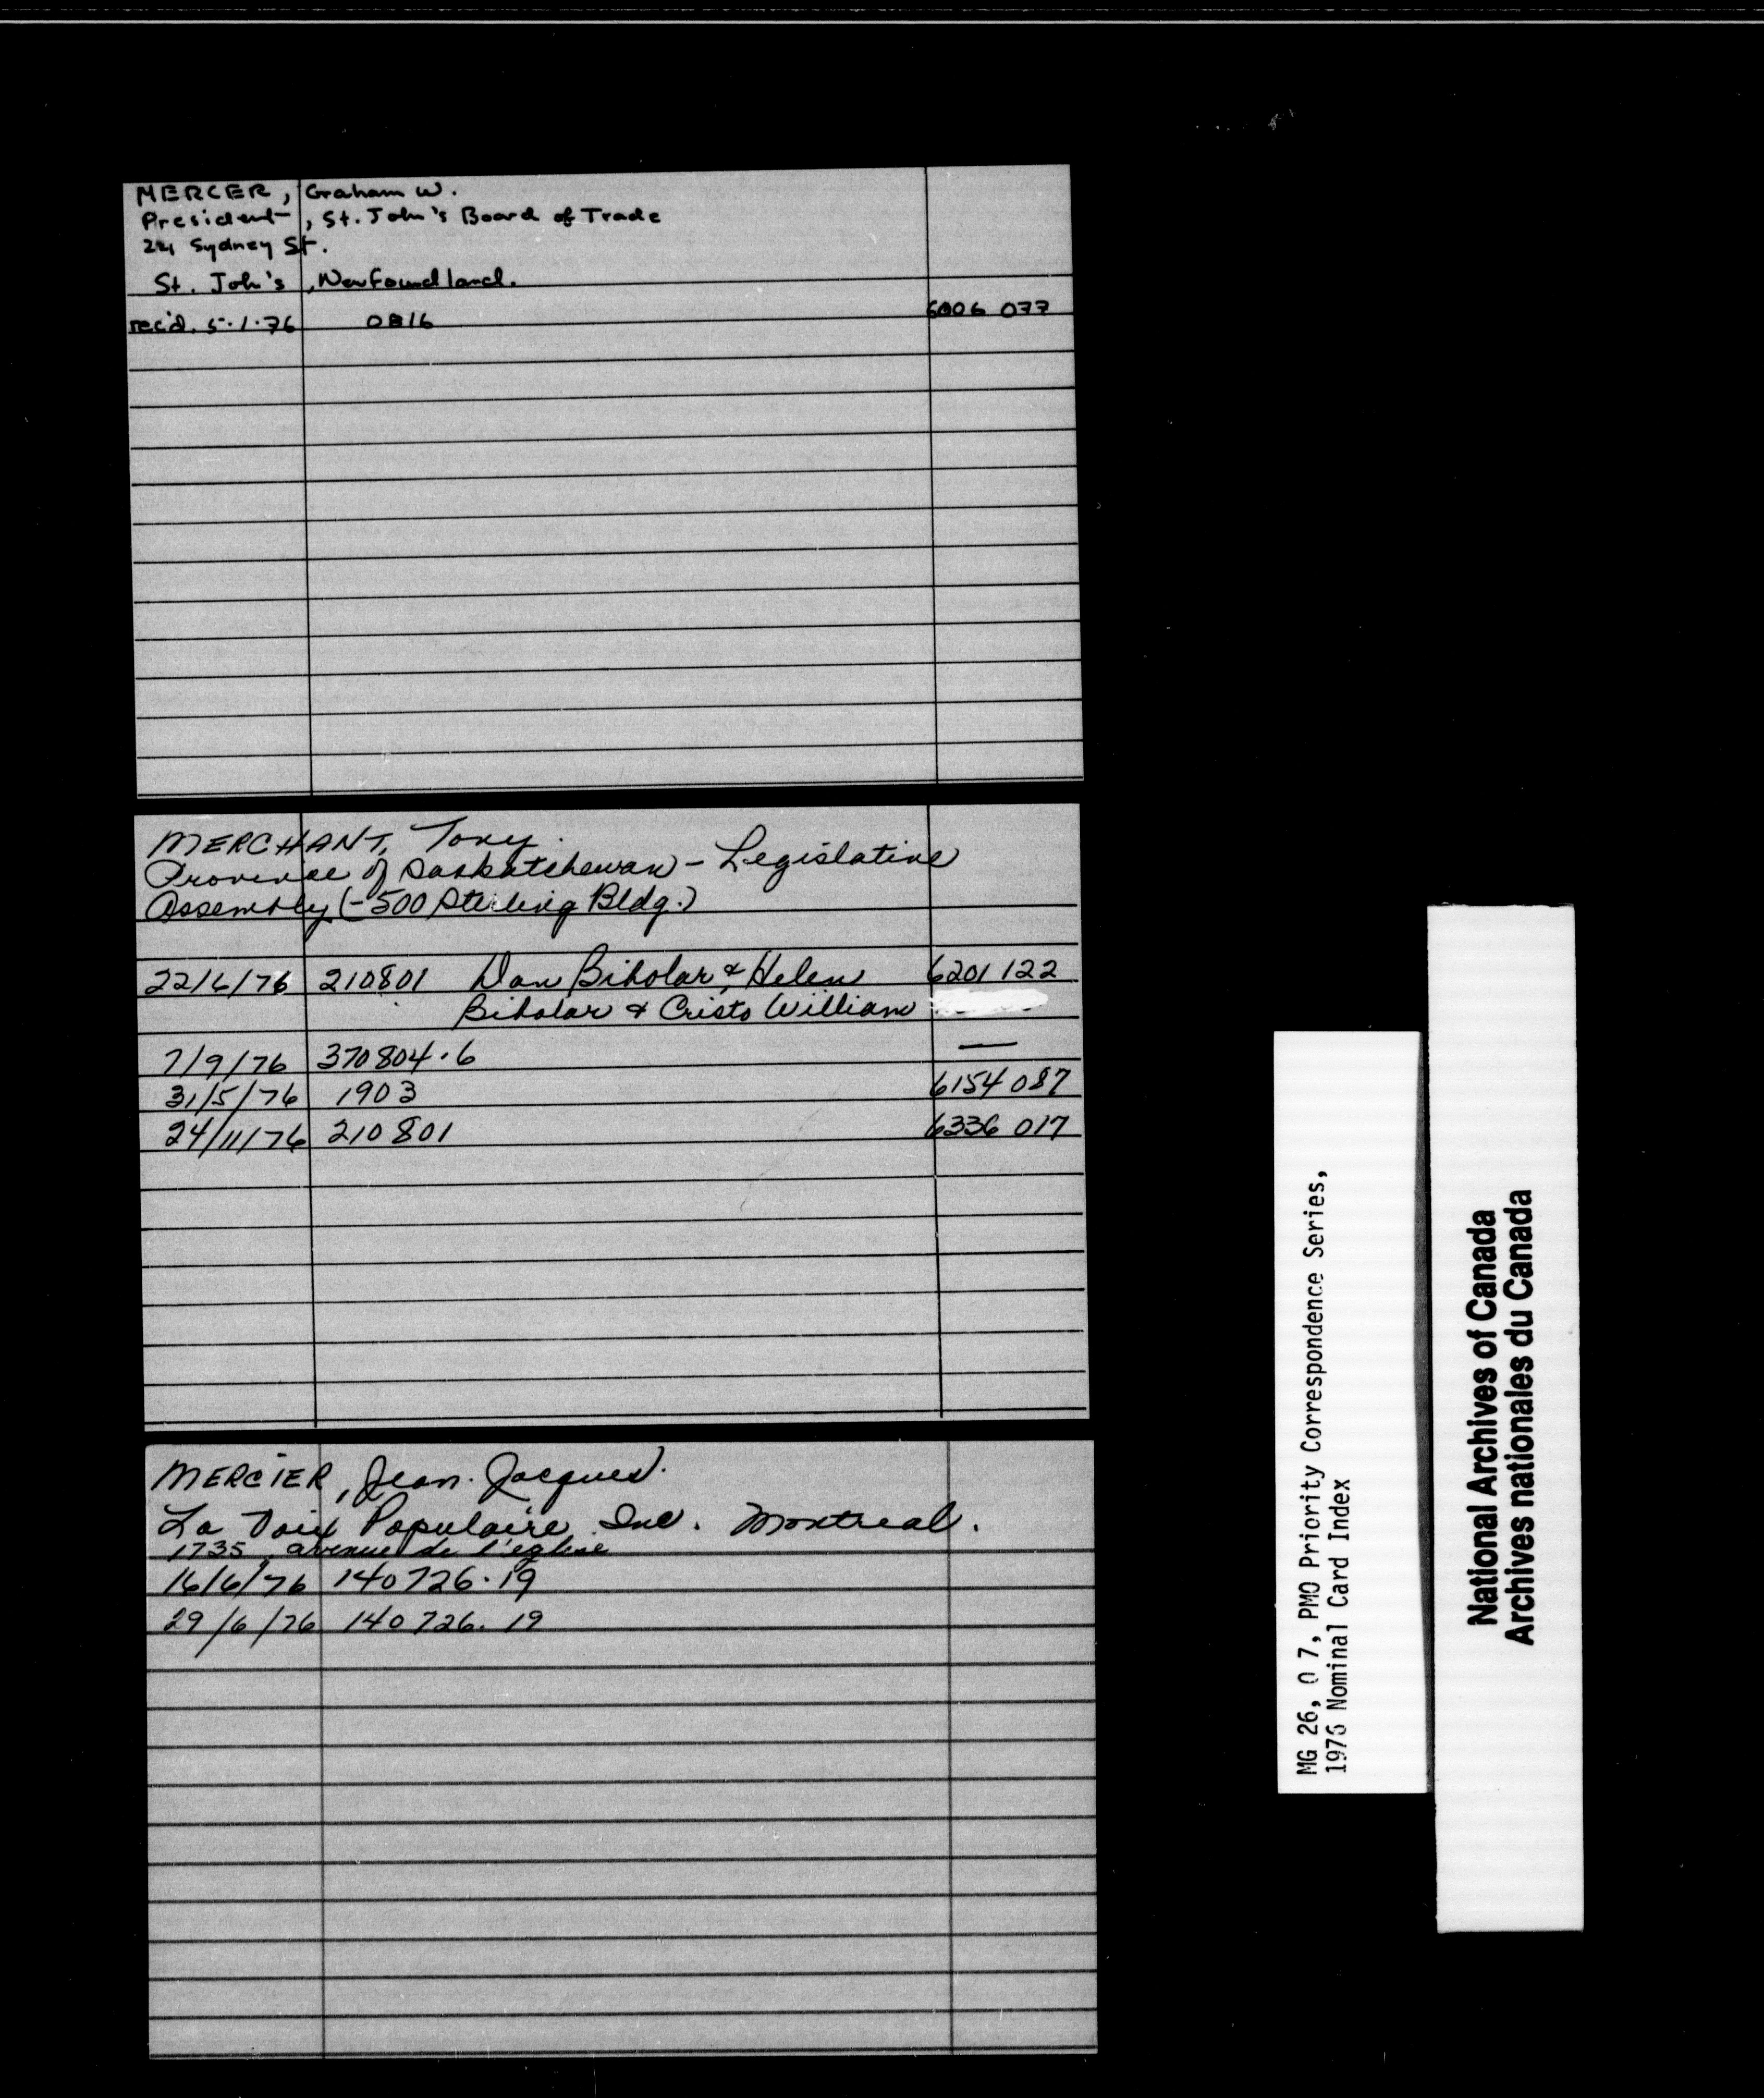 MERCER, Graham W.
President, St. John's Board of Trade
24 Sydney St.
St. John's, Newfoundland.
rec'd. 5.1.76 0816 6006 077
MERCHANT, Tony.
Province of Saskatchewan - Legislative
Assembly (-500 Sterling Bldg.)
22/6/76 210801 Dan Biholar & Helen 6201 122
Biholar & Cristo William
7/9/76 370804.6 —
31/5/76 1903 6154 087
24/11/76 210801 6336 017
MERCIER, Jean-Jacques.
La Voix Populaire Inc. Montreal.
1735, avenue de l'église
16/6/76 140726.19
29/6/76 140726.19
MG 26, O 7, PMO Priority Correspondence Series,
1976 Nominal Card Index
National Archives of Canada
Archives nationales du Canada